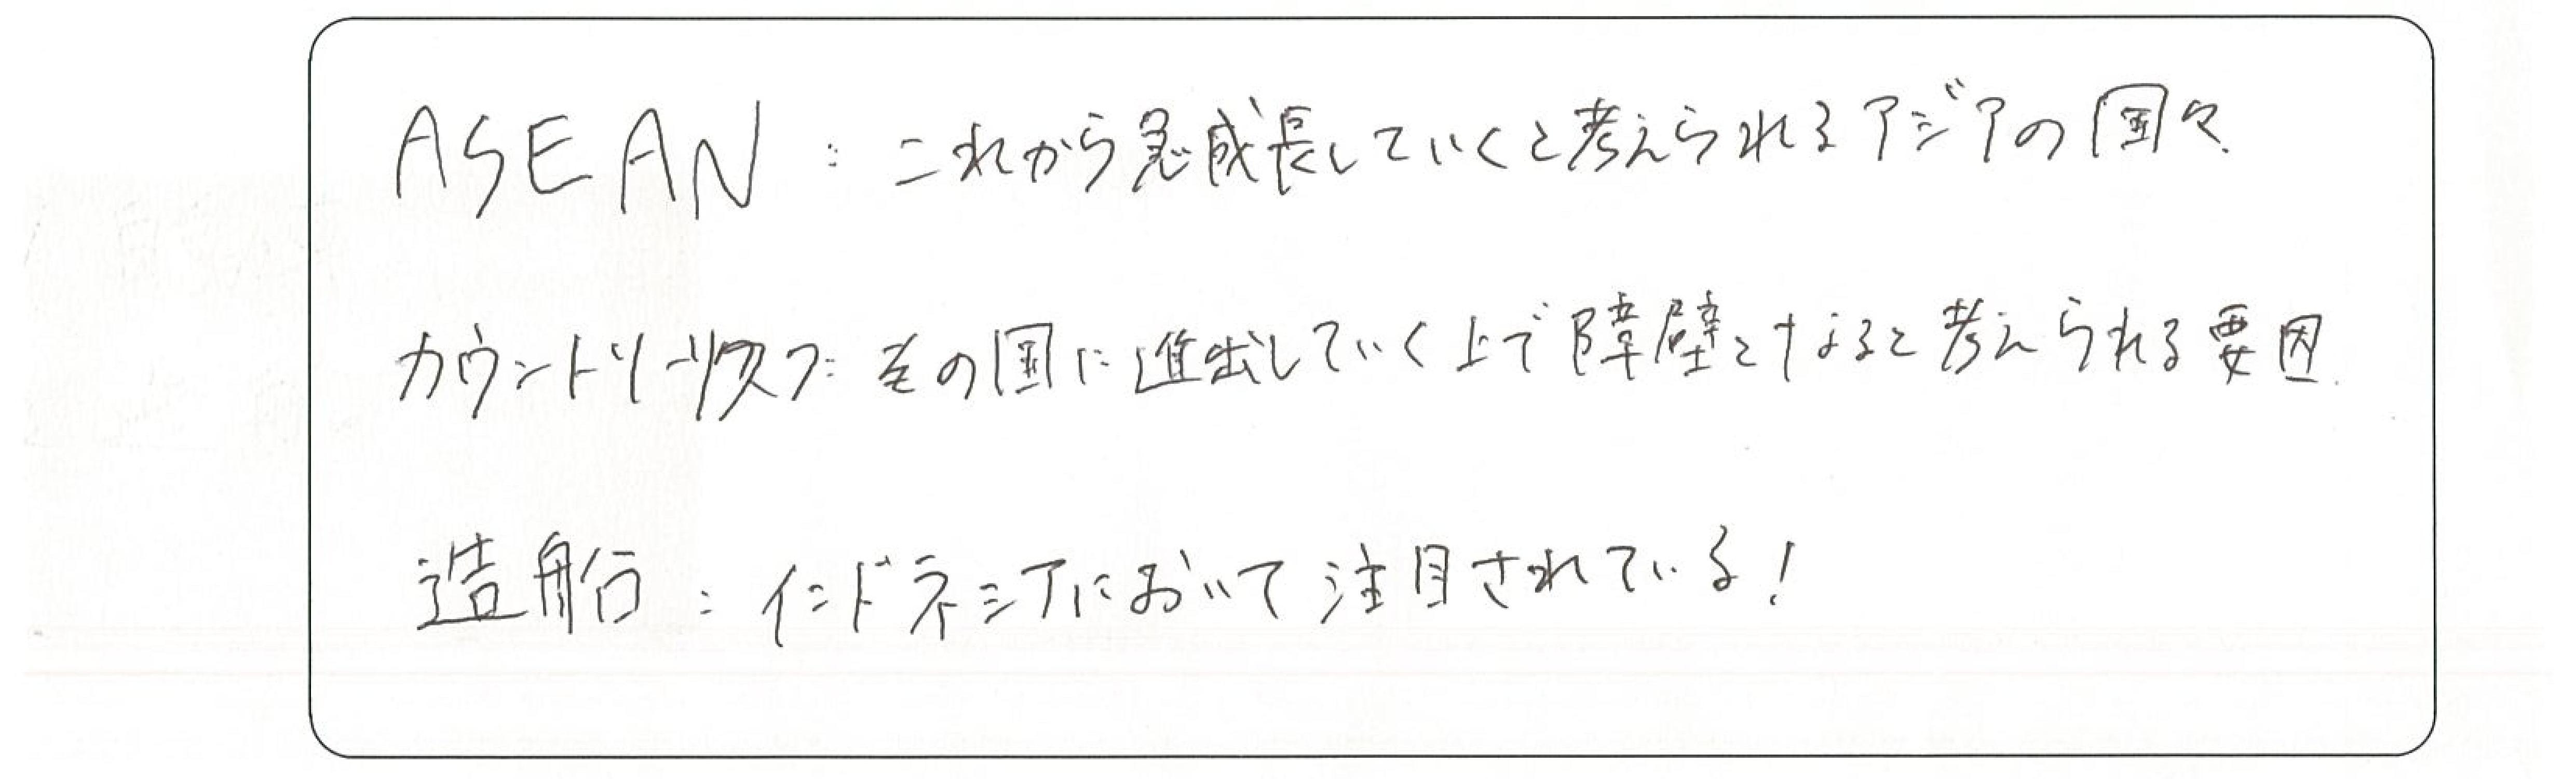 ASEAN：これから急成長していくと考えられるアジアの国々.
カウントリーリスク：その国に進出していく上で障壁となると考えられる要因.
造船：インドネシアにおいて注目されている!